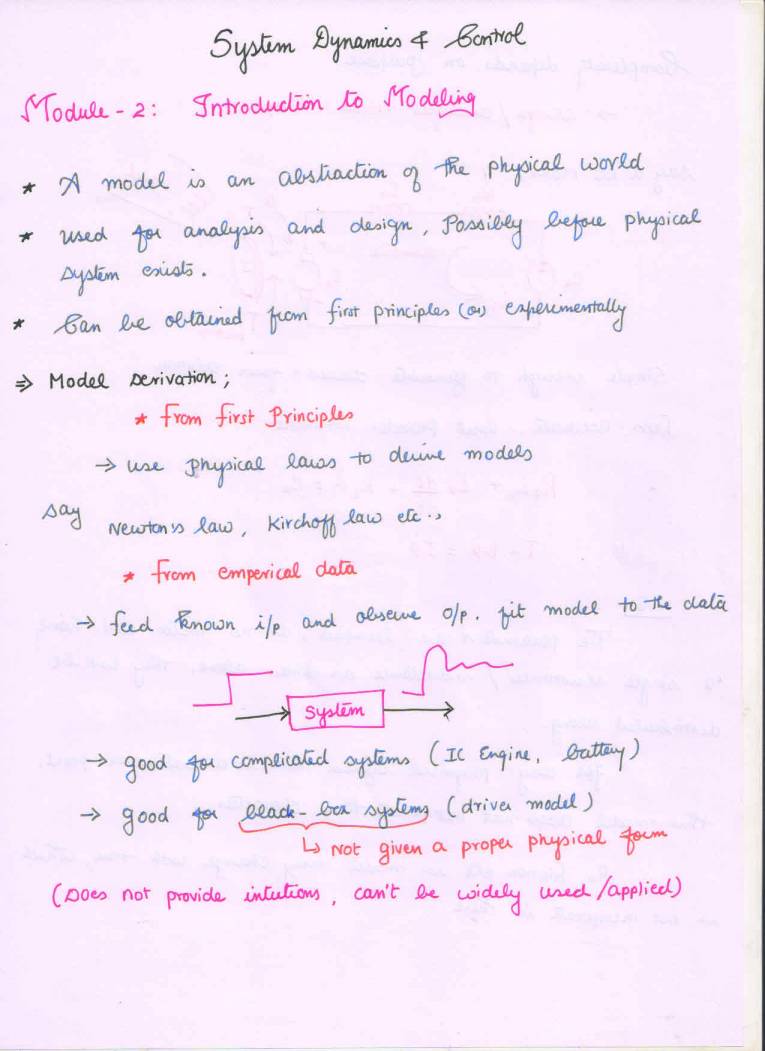 System Dynamics & Control
Module - 2: Introduction to Modeling
* A model is an abstraction of the physical world
* used for analysis and design, Possibly before physical
system exists.
* Can be obtained from first principles (or) experimentally
⇒ Model Derivation;
* from first Principles
→ use physical laws to derive models
say Newton's law, Kirchoff law etc..
* from emperical data
→ feed known i/p and observe o/p. fit model to the data
System
→ good for complicated systems (IC Engine, battery)
→ good for black-box systems (driver model)
↳ Not given a proper physical form
(Does not provide intutions, can't be widely used/applied)